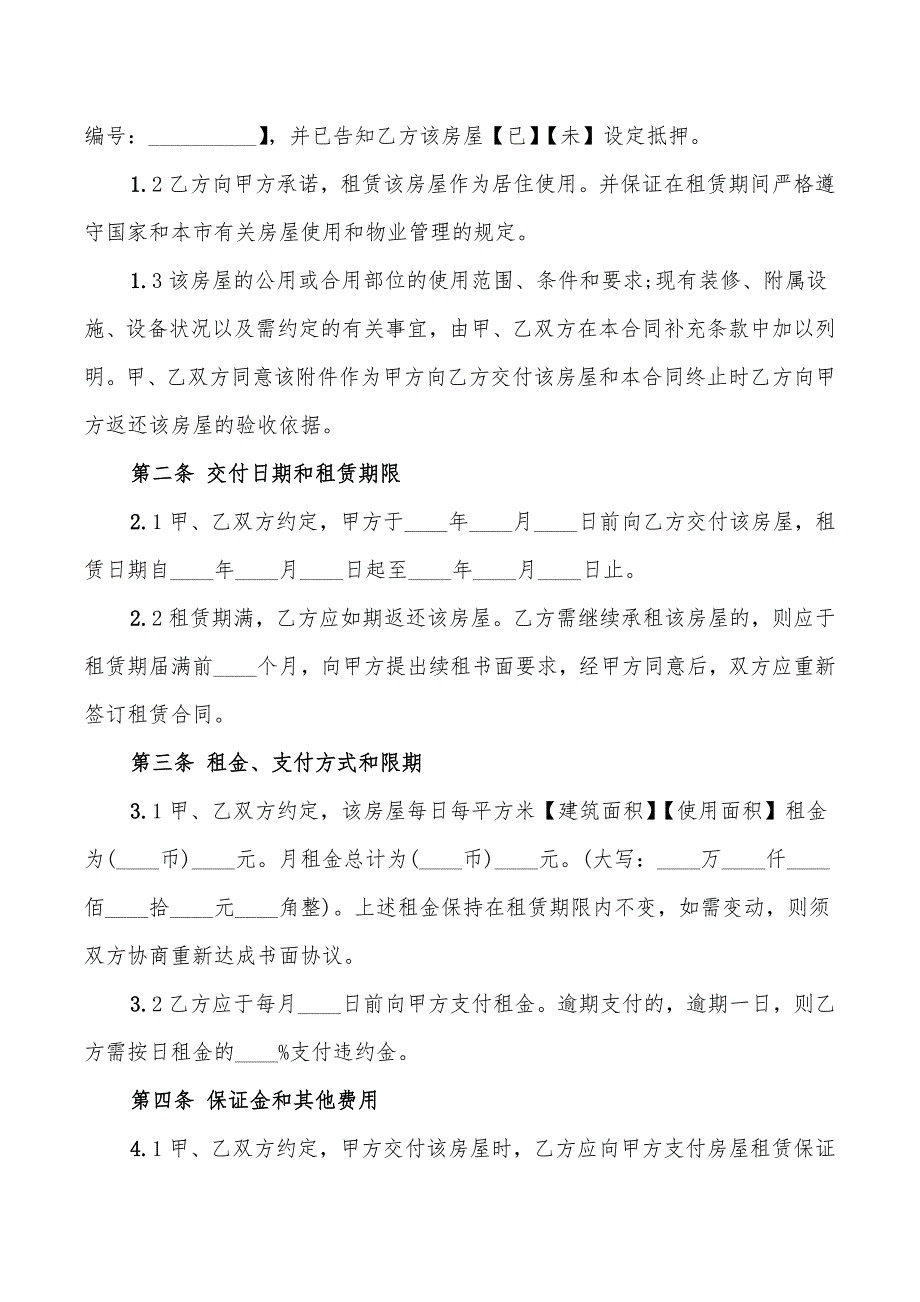 编号：__________】，并已告知乙方该房屋【已】【未】设定抵押。
1.2 乙方向甲方承诺，租赁该房屋作为居住使用。并保证在租赁期间严格遵
守国家和本市有关房屋使用和物业管理的规定。
1.3 该房屋的公用或合用部位的使用范围、条件和要求;现有装修、附属设
施、设备状况以及需约定的有关事宜，由甲、乙双方在本合同补充条款中加以列
明。甲、乙双方同意该附件作为甲方向乙方交付该房屋和本合同终止时乙方向甲
方返还该房屋的验收依据。
第二条 交付日期和租赁期限
2.1 甲、乙双方约定，甲方于____年____月____日前向乙方交付该房屋，租
赁日期自____年____月____日起至____年____月____日止。
2.2 租赁期满，乙方应如期返还该房屋。乙方需继续承租该房屋的，则应于
租赁期届满前____个月，向甲方提出续租书面要求，经甲方同意后，双方应重新
签订租赁合同。
第三条 租金、支付方式和限期
3.1 甲、乙双方约定，该房屋每日每平方米【建筑面积】【使用面积】租金
为(____币)____元。月租金总计为(____币)____元。(大写：____万____仟____
佰____拾____元____角整)。上述租金保持在租赁期限内不变，如需变动，则须
双方协商重新达成书面协议。
3.2 乙方应于每月____日前向甲方支付租金。逾期支付的，逾期一日，则乙
方需按日租金的____%支付违约金。
第四条 保证金和其他费用
4.1 甲、乙双方约定，甲方交付该房屋时，乙方应向甲方支付房屋租赁保证